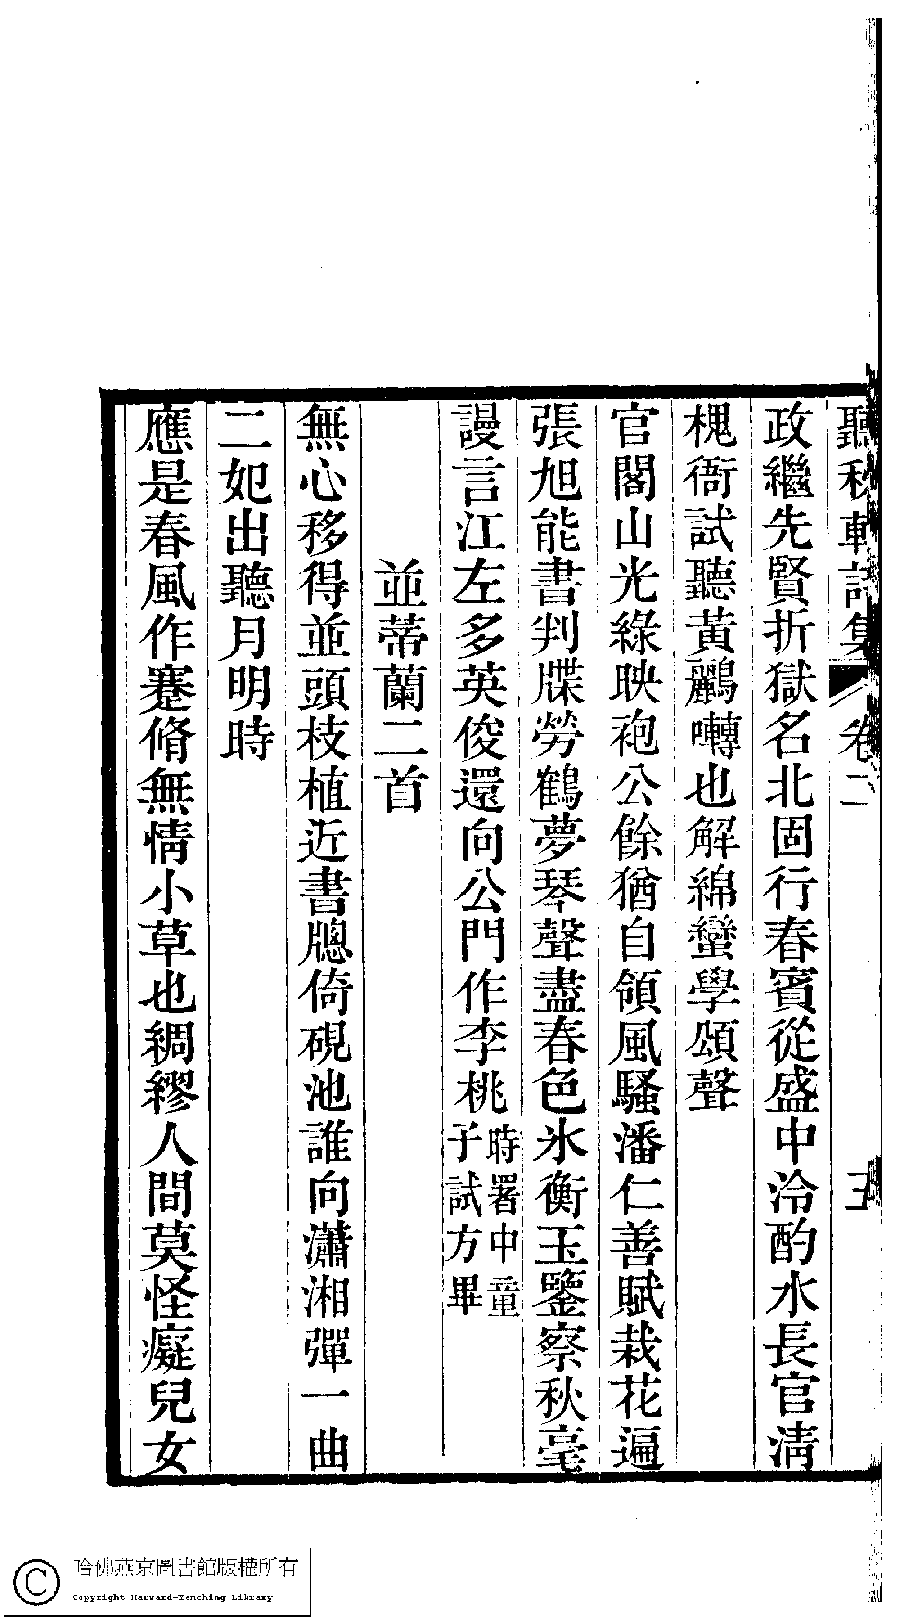 聽秋軒詩集 卷二 五
政繼先賢折獄名北固行春賓從盛中泠酌水長官清
槐衙試聽黃鸝囀也解綿蠻學頌聲
官閣山光綠映袍公餘猶自領風騷潘仁善賦栽花遍
張旭能書判牒勞鶴夢琴聲盡春色氷衡玉鑒察秋毫
謾言江左多英俊還向公門作李桃時署中童子試方畢
並蒂蘭二首
無心移得並頭枝植近書牕倚硯池誰向瀟湘彈一曲
二妃出聽月明時
應是春風作蹇脩無情小草也綢繆人間莫怪癡兒女
哈佛燕京圖書館版權所有
Copyright Harvard-Yenching Library